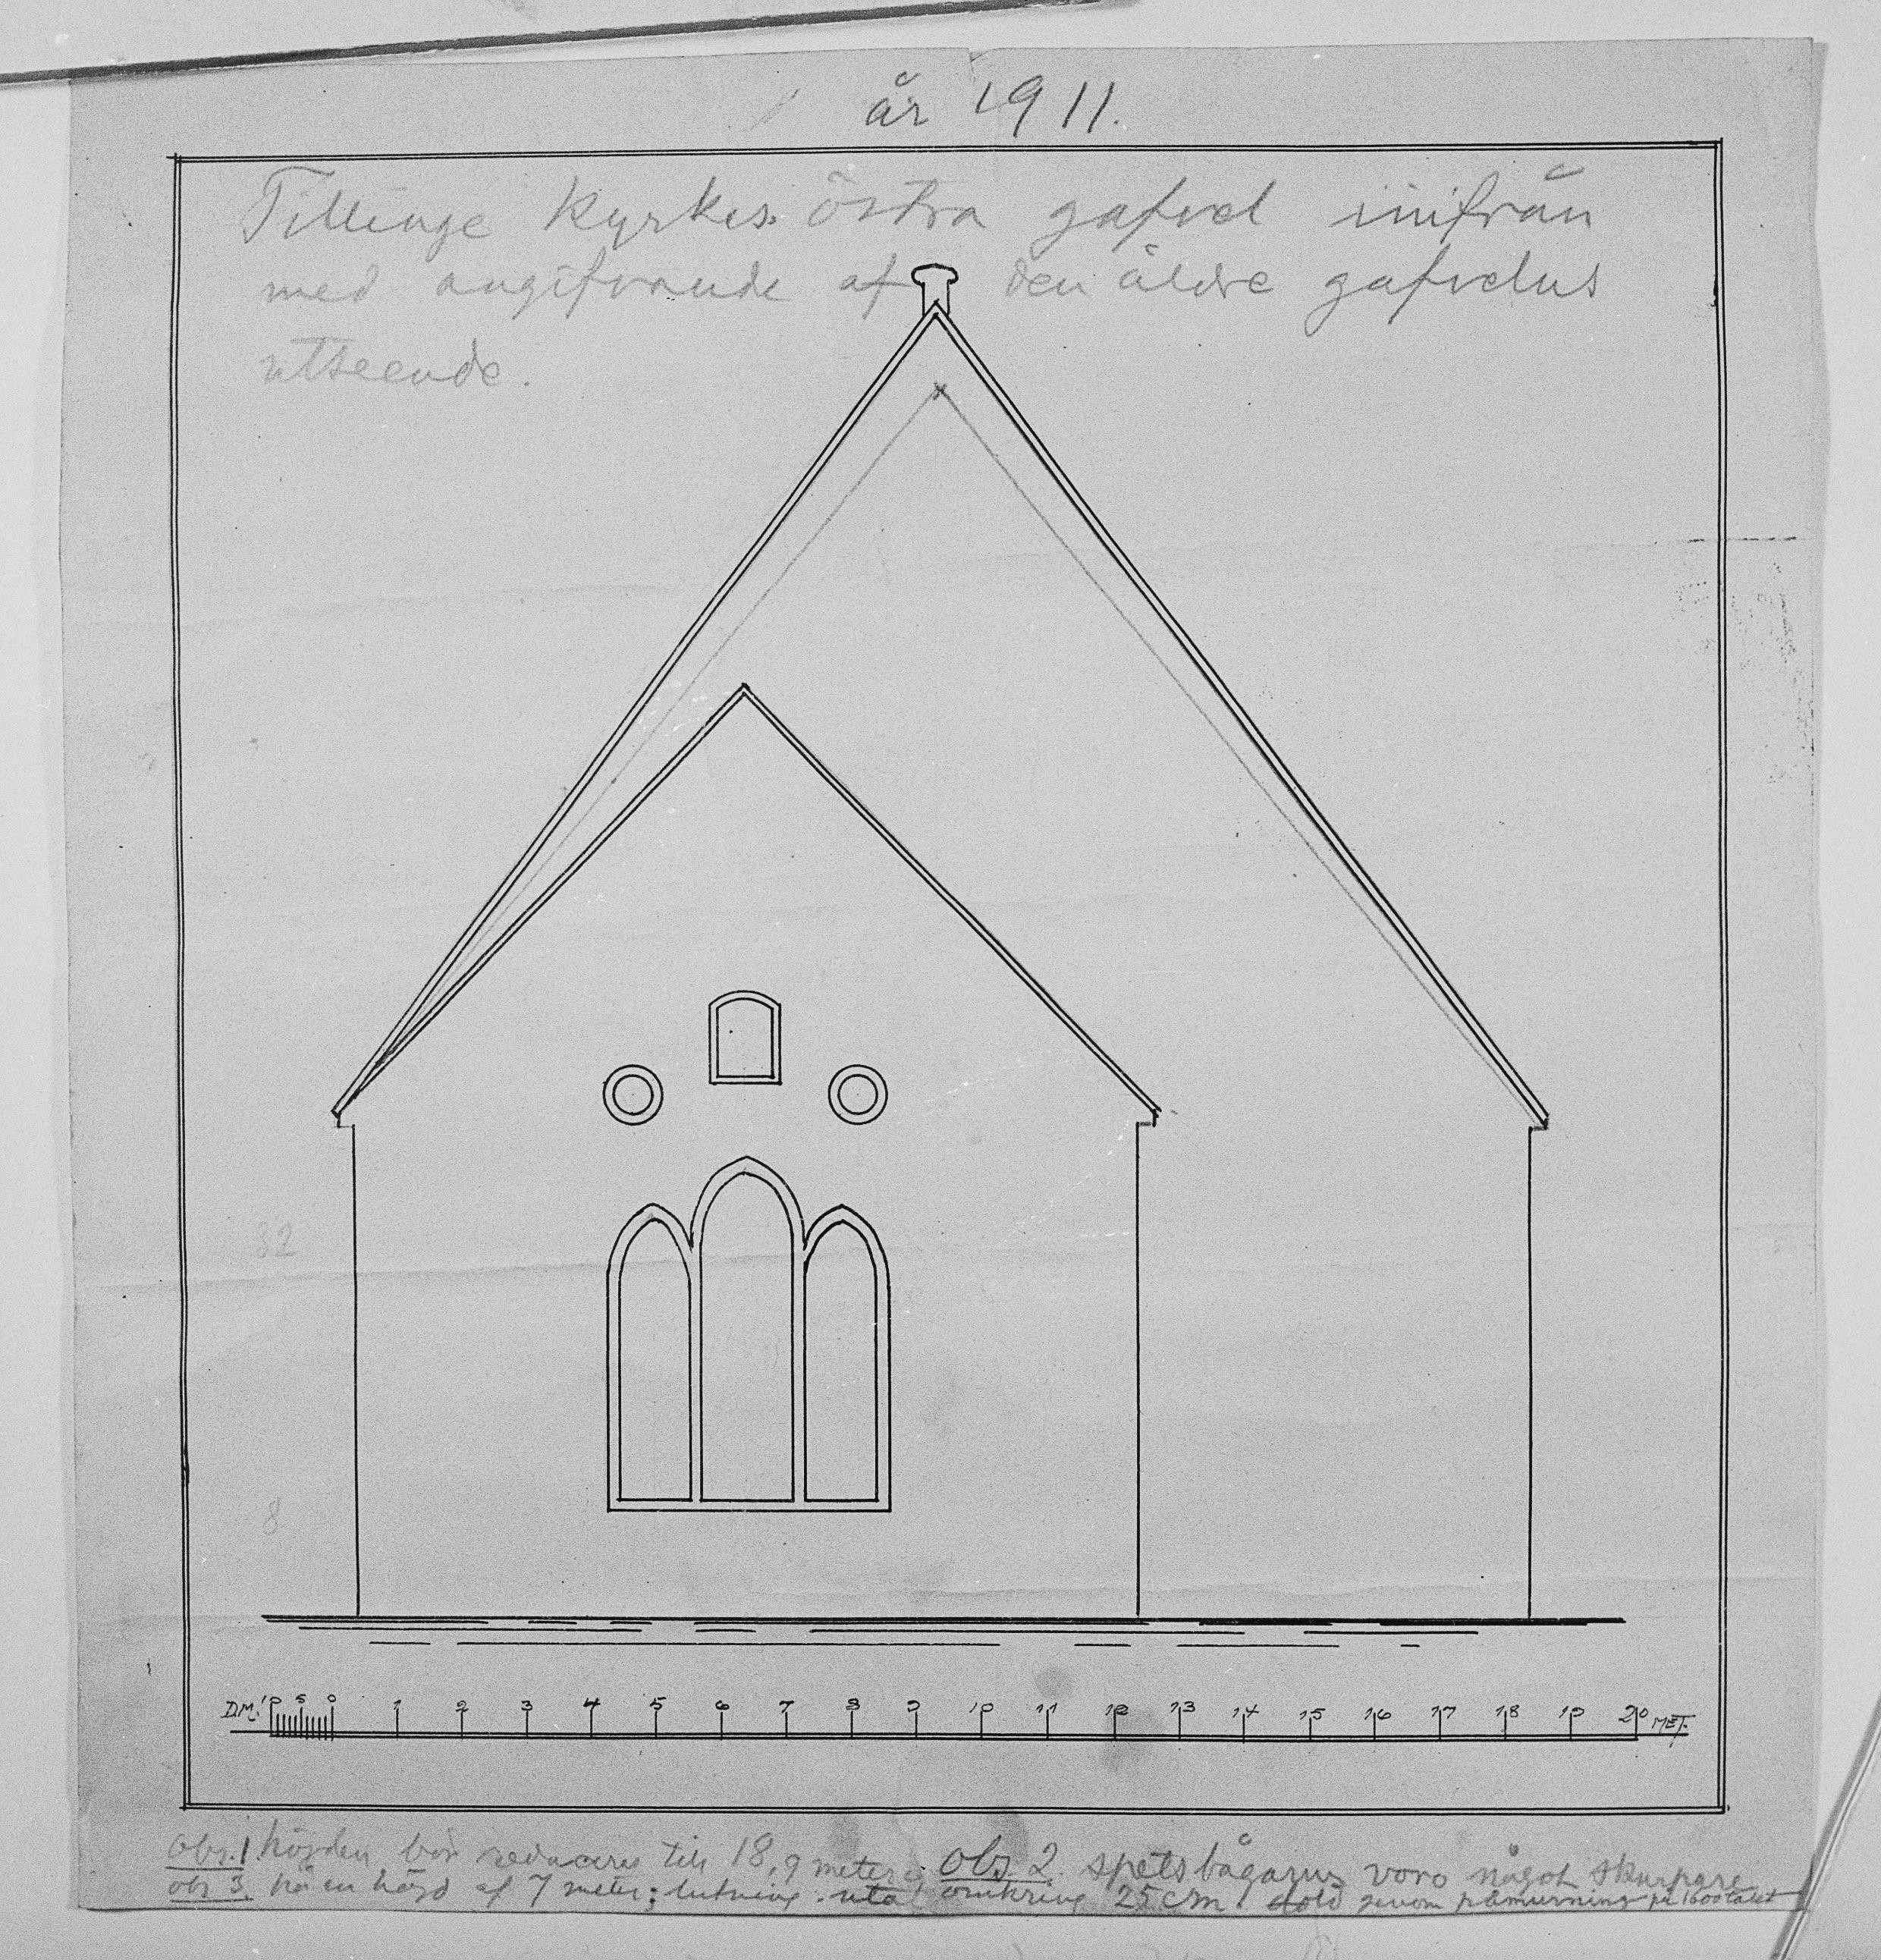 år 1911.
Tillinge Kyrkas östra gafvel inifrån
med angifvande af den äldre gafvelns
utseende.
32
8
D.M. 10 5 0 1 2 3 4 5 6 7 8 9 10 11 12 13 14 15 16 17 18 19 20 MET.
obs. 1 höjden bör reduceras till 18,9 meter. obs 2. spetsbågarna voro något skarpare
obs 3. på en höjd af 7 meter; lutning utåt omkring 25 cm. dold genom påmurning på 1600talet